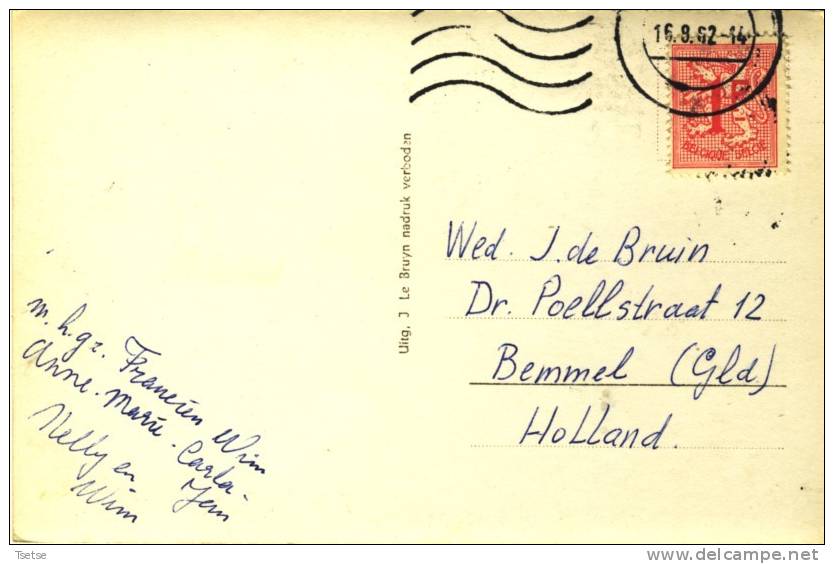 16.8.62-14
1F
BELGIQUE-BELGIE
Uitg. J Le Bruyn nadruk verboden
Wed. J. de Bruin
Dr. Poellstraat 12
Bemmel (Gld)
Holland.
m. h. gr. Francien Wim
Anne-Marie. Carla.
Nelly en
Wim
Tsetse
www.delcampe.net